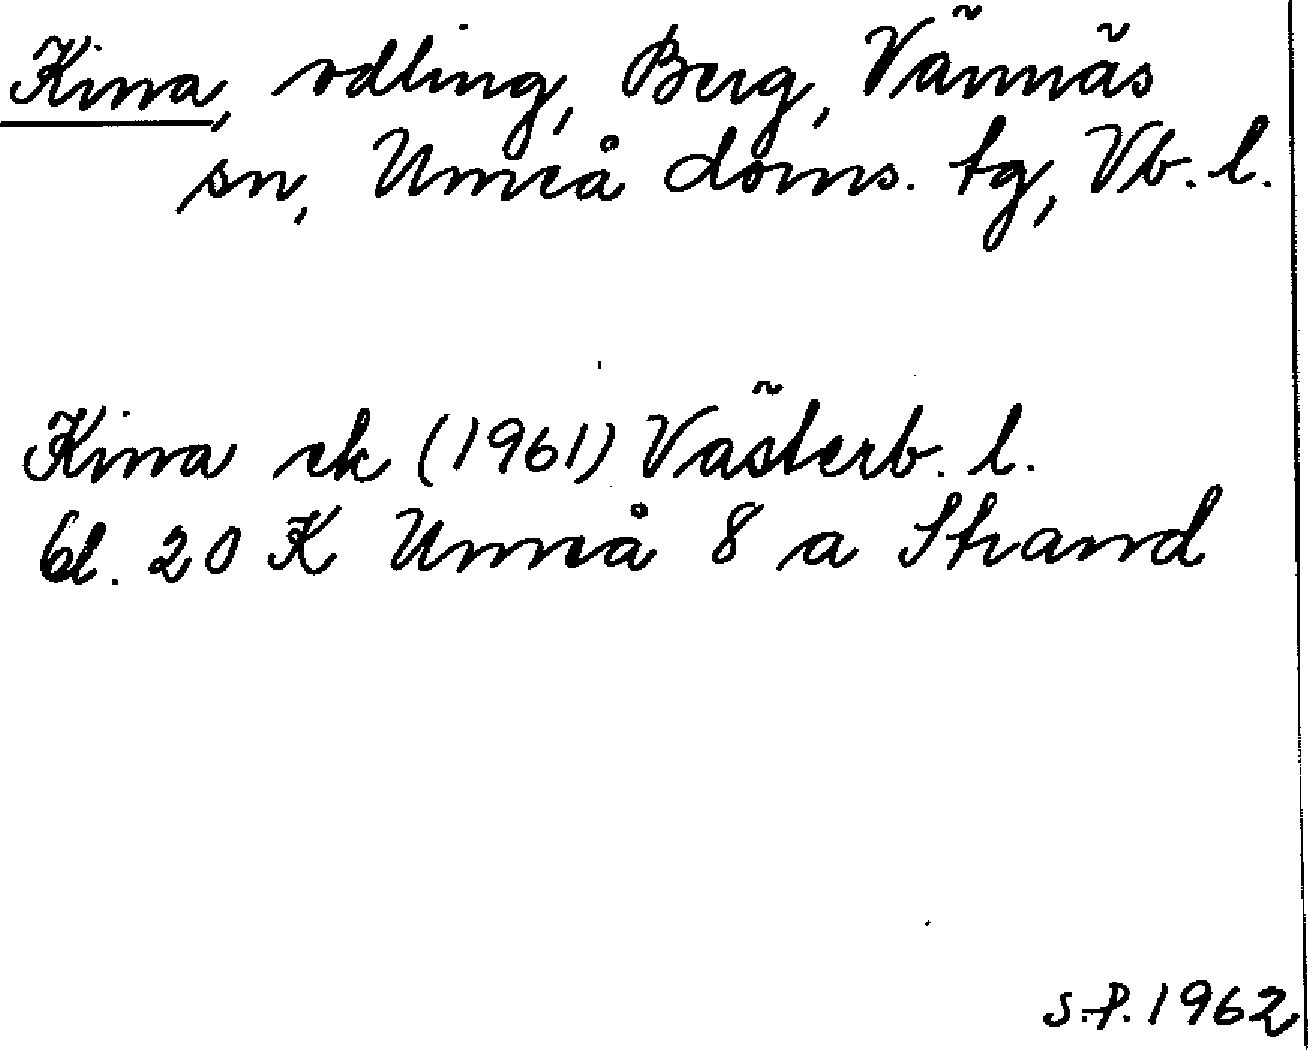 Kina, odling, Berg, Vännäs
sn, Umeå doms. tg, Vb. l.
Kina ek (1961) Västerb. l.
bl. 20 K Umeå 8 a Strand
S.P. 1962